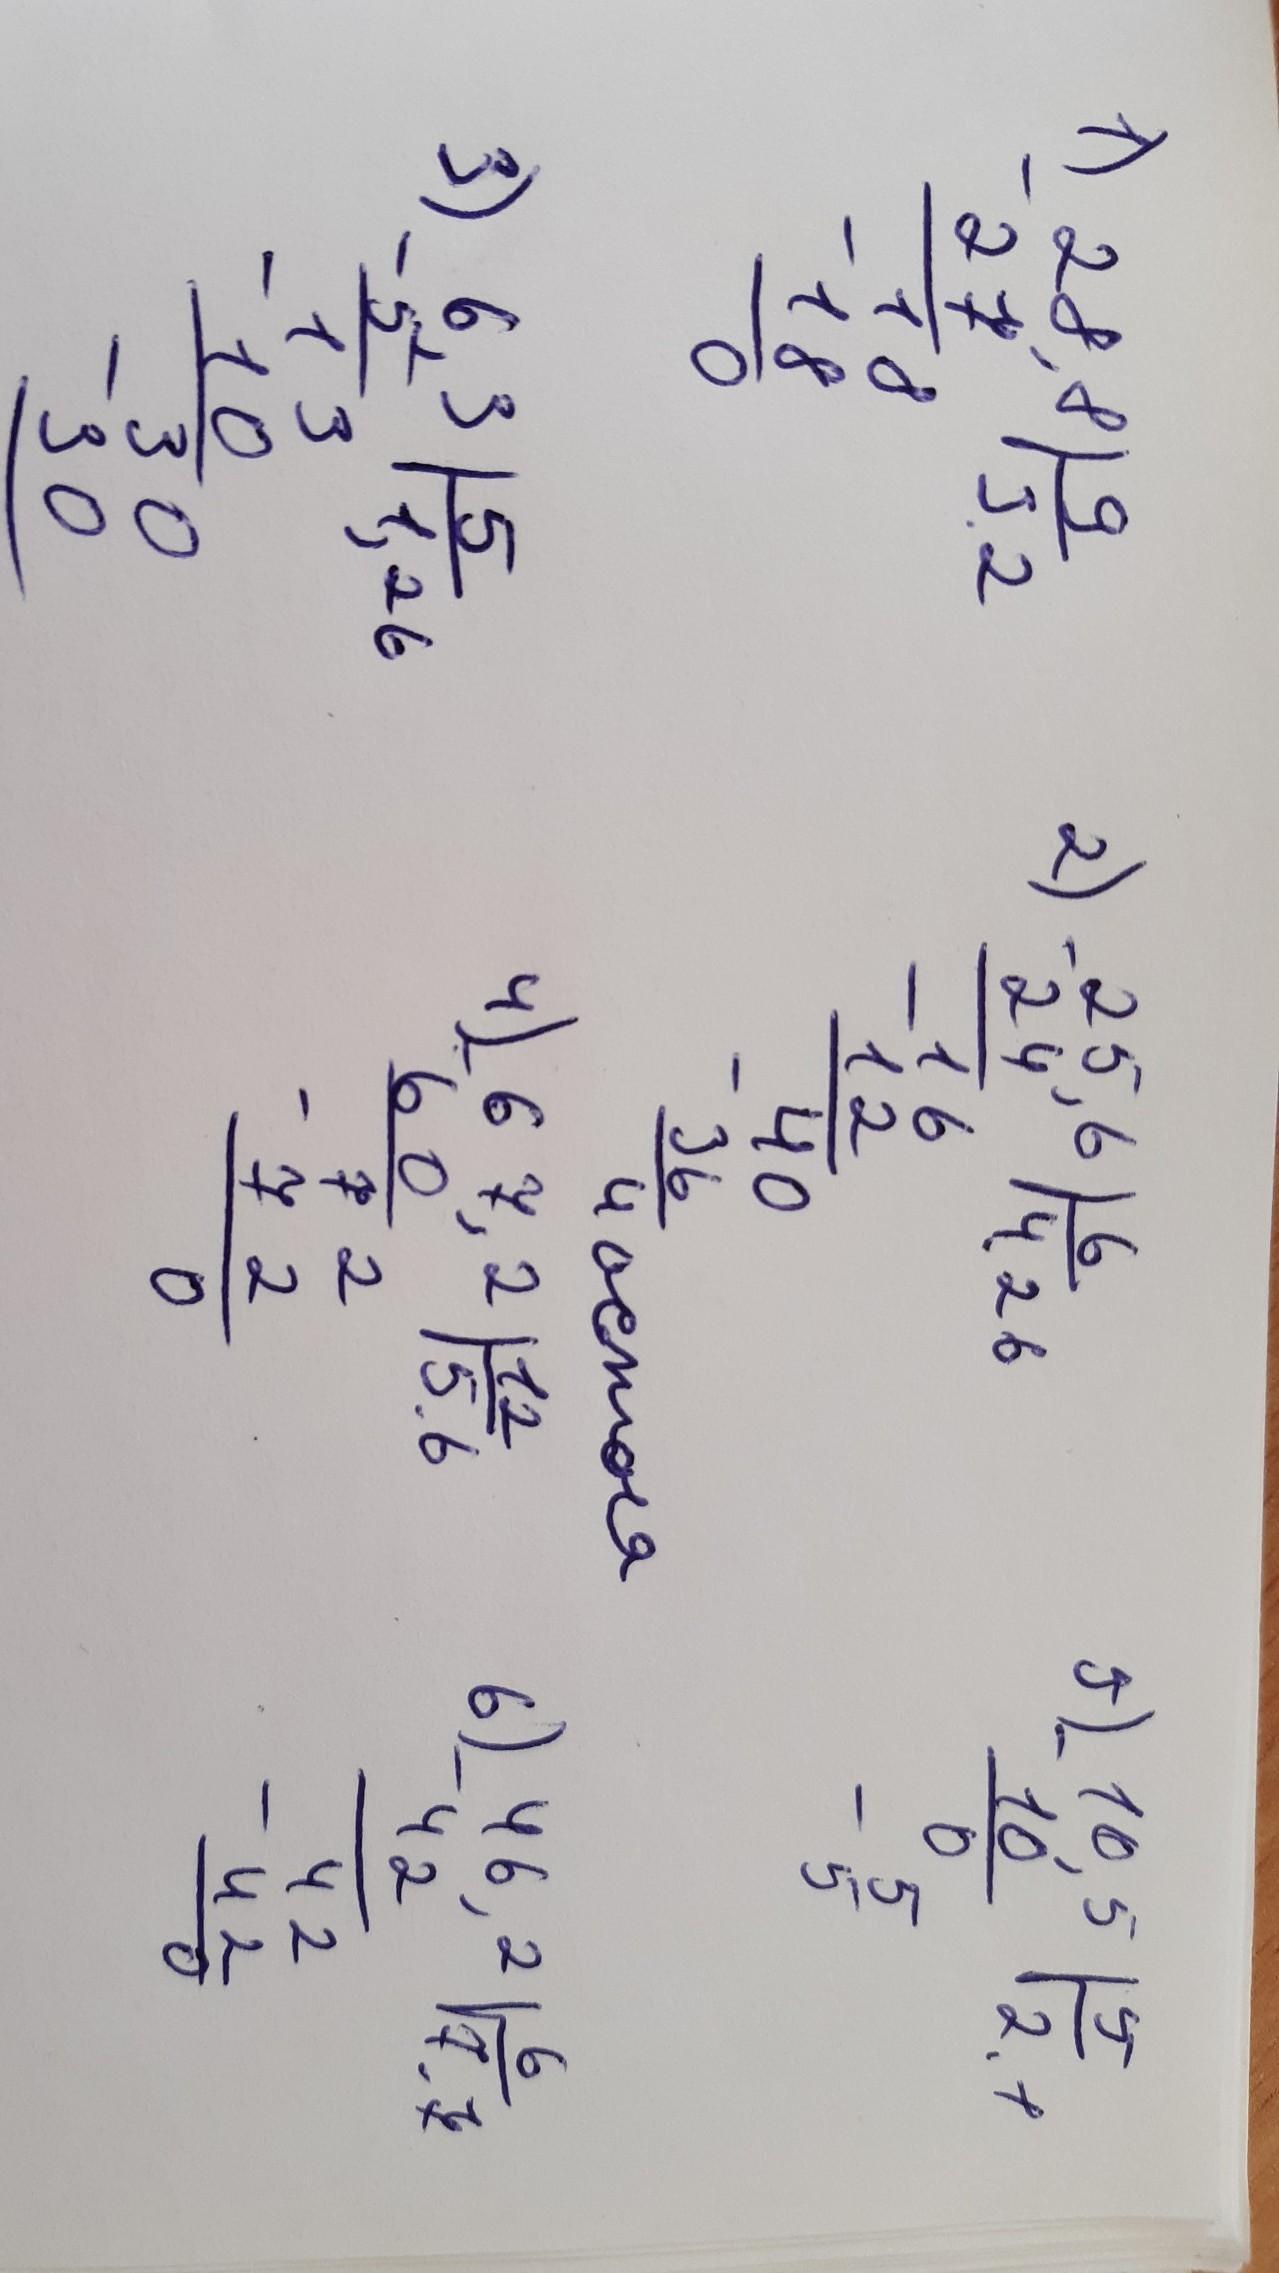 1) -28,8|9
27 3.2
-18
18
0
2) -25,6|6
24 4,26
-16
12
-40
36
4 остача
5) -10,5|5
10 2.1
0
-5
5
3) -6,3|5
5 1,26
-13
10
-30
30
4) -67,2|12
60 5.6
-72
72
0
6) -46,2|6
42 7.7
-42
42
0